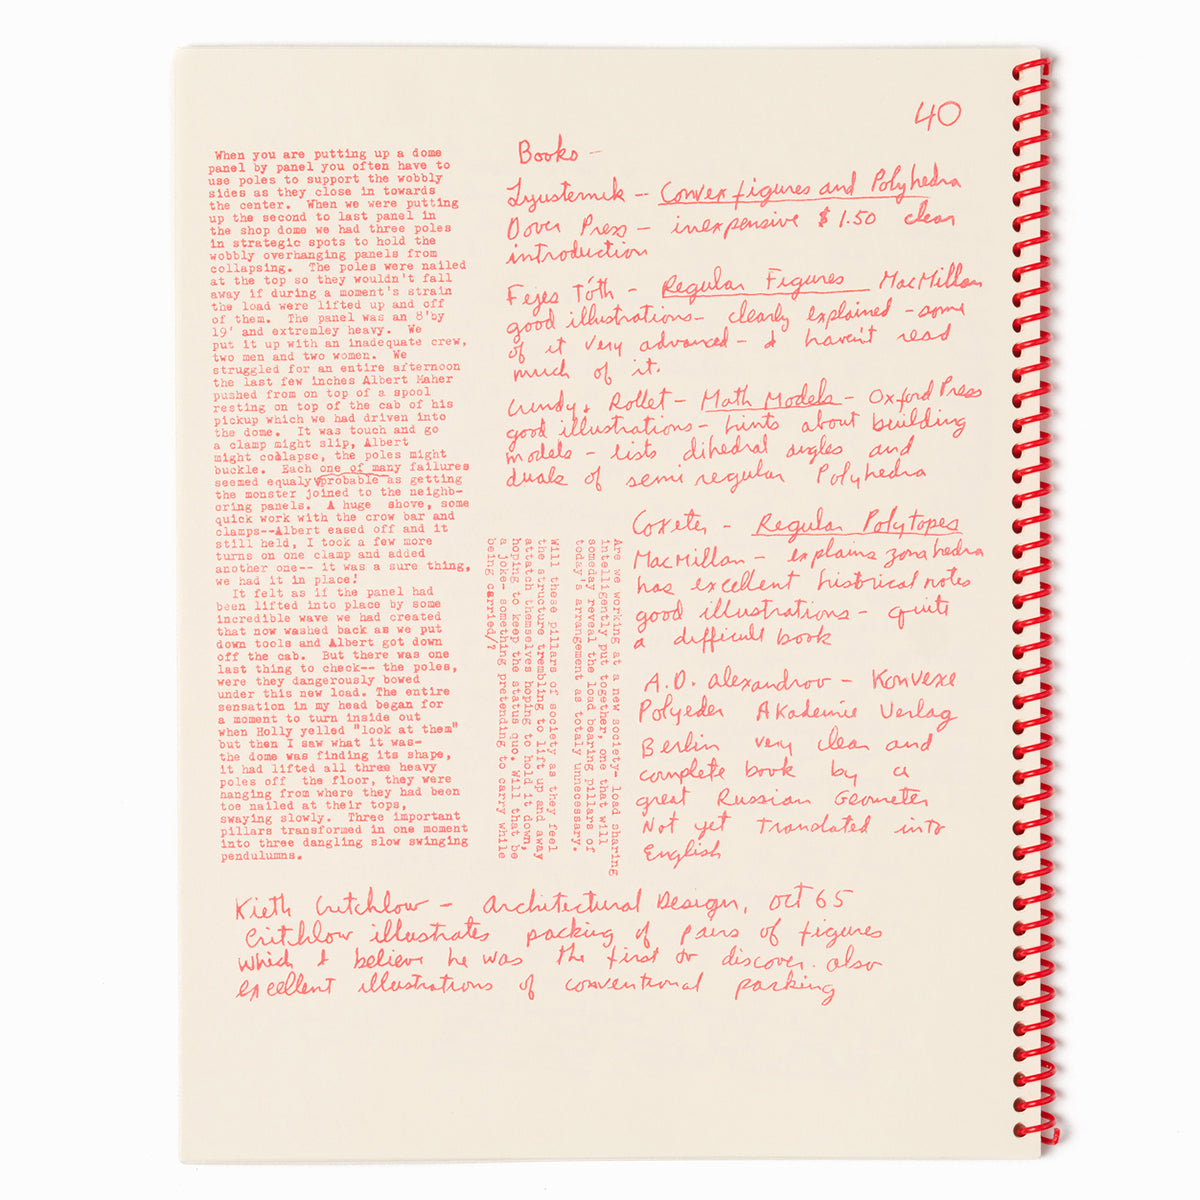 40
When you are putting up a dome
panel by panel you often have to
use poles to support the wobbly
sides as they close in towards
the center.  When we were putting
up the second to last panel in
the shop dome we had three poles
in strategic spots to hold the
wobbly overhanging panels from
collapsing.  The poles were nailed
at the top so they wouldn't fall
away if during a moment's strain
the load were lifted up and off
of them.  The panel was an 8'by
19' and extremley heavy.  We
put it up with an inadequate crew,
two men and two women.  We
struggled for an entire afternoon
the last few inches Albert Maher
pushed from on top of a spool
resting on top of the cab of his
pickup which we had driven into
the dome.  It was touch and go
a clamp might slip, Albert
might collapse, the poles might
buckle.  Each one of many failures
seemed equaly probable as getting
the monster joined to the neighb-
oring panels.  A huge  shove, some
quick work with the crow bar and
clamps--Albert eased off and it
still held, I took a few more
turns on one clamp and added
another one-- it was a sure thing,
we had it in place!
It felt as if the panel had
been lifted into place by some
incredible wave we had created
that now washed back as we put
down tools and Albert got down
off the cab.  But there was one
last thing to check-- the poles,
were they dangerously bowed
under this new load. The entire
sensation in my head began for
a moment to turn inside out
when Holly yelled "look at them"
but then I saw what it was-
the dome was finding its shape,
it had lifted all three heavy
poles off  the floor, they were
hanging from where they had been
toe nailed at their tops,
swaying slowly.  Three important
pillars transformed in one moment
into three dangling slow swinging
pendulumns.
Are we working at a new society- load sharing
intelligently put together, one that will
someday reveal the load bearing pillars of
today's arrangement as totaly unnecessary.
Will these pillars of society as they feel
the structure trembling to lift up and away
attatch themselves hoping to hold it down,
hoping to keep the status quo. Will that be
a joke- something pretending to carry while
being carried/?
Books -
Lyusternik - Convex figures and Polyhedra
Dover Press - inexpensive $1.50 clear
introduction
Fejes Tóth - Regular Figures MacMillan
good illustrations - clearly explained - some
of it very advanced - I haven't read
much of it.
Cundy + Rollet - Math Models - Oxford Press
good illustrations - hints about building
models - lists dihedral angles and
duals of semi regular Polyhedra
Coxeter - Regular Polytopes
MacMillan - explains zonahedra
has excellent historical notes
good illustrations - quite
a difficult book
A.D. Alexandrov - Konvexe
Polyeder Akademie Verlag
Berlin very clear and
complete book by a
great Russian Geometer
Not yet translated into
English
Kieth Critchlow - Architectural Design, Oct 65
Critchlow illustrates packing of pairs of figures
which I believe he was the first to discover. also
excellent illustrations of conventional packing